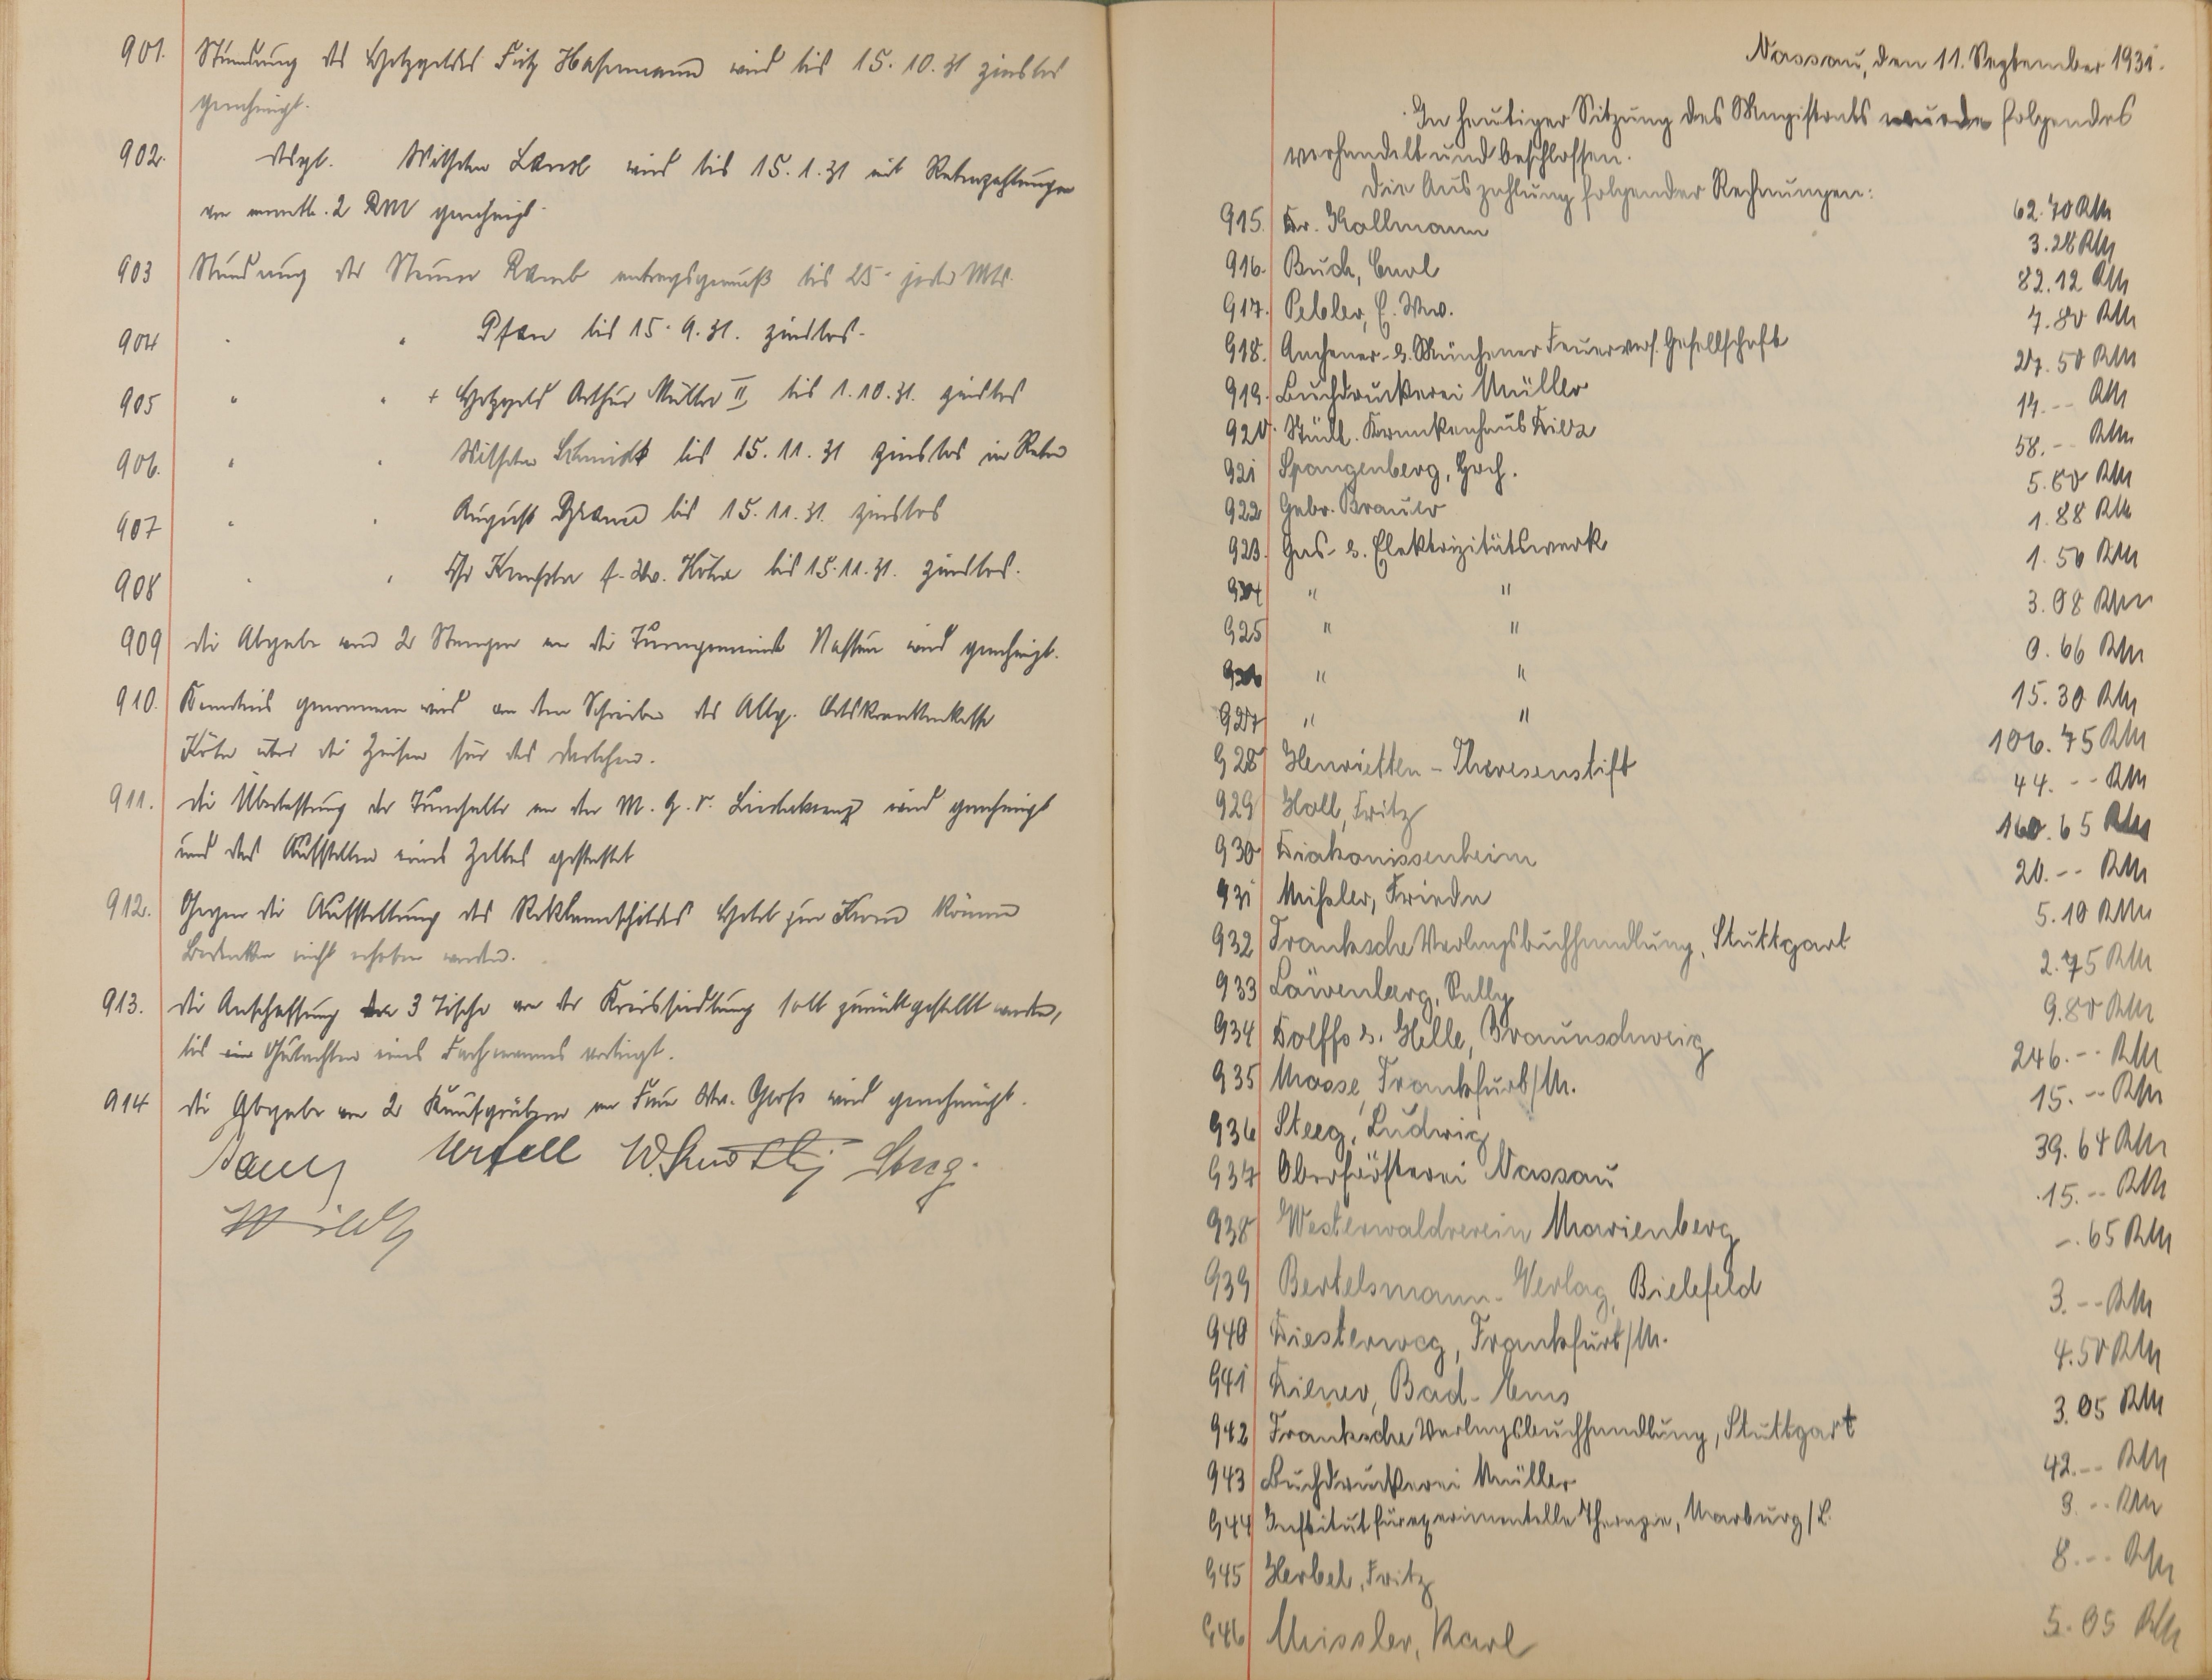 901. Stundung des Holzgeldes Fritz Hasemann wird bis 15.10.31 zinslos
genehmigt.
902. desgl. Wilhelm wird bis 15.1.31 mit Ratenzahlungen
von monatl. 2 RM genehmigt.
903 Stundung der Steuer antragsgemäß bis 25. jeden Mts.
904 " " Pfau bis 15.9.31. zinslos.
905 " " + Holzgeld Arthur Müller II, bis 1.10.31. zinslos
906. " " Wilhelm Schmidt bis 15.11.31 zinslos in Raten
907 " " August bis 15.11.31. zinslos
908 " " bis 15.11.31. zinslos.
909 die Abgabe von 2 Stangen an die Turngemeinde Nassau wird genehmigt.
910. Kenntnis genommen wird von dem Schreiben der Allg. Ortskrankenkasse
über die Zinsen für das Darlehen.
911. die Überlassung der Turnhalle an den M.G.V. Liederkranz wird genehmigt
und das Aufstellen eines Zeltes gestattet
912. Gegen die Aufstellung des Reklameschildes Hotel zur Krone können
Bedenken nicht erhoben werden.
913. die Anschaffung der 3 Tische von der Kreissiedlung soll zurückgestellt werden,
bis ein Gutachten eines Fachmannes vorliegt.
914 die Abgabe von 2 Kaufgräbern an Frau Ww. Groß wird genehmigt.
Unfell
Nassau, den 11. September 1931.
In heutiger Sitzung des Magistrats wurde folgendes
verhandelt und beschlossen.
Die Auszahlung folgender Rechnungen:
915. Dr. Kollmann 62.70 RM
916. Buch, Carl 3.28 RM
917. Pebler, E. Ww. 82.12 RM
918. Aachener- u. Münchener Feuervers. Gesellschaft 7.80 RM
919. Buchdruckerei Müller 27.50 RM
920. Städt. Krankenhaus Diez 14.-- RM
921 Spangenberg, Hrch. 58.-- RM
922 Gebr. Brauer 5.60 RM
923. Gas- u. Elektrizitätswerk 1.88 RM
924 " " 1.50 RM
925 " " 3.08 RM
926 " " 0.66 RM
927 " " 15.30 RM
928 Henrietten-Theresenstift 106.75 RM
929 Holl, Fritz 44.-- RM
930 Diakonissenheim 160.65 RM
931 Mißler, Frieda 20.-- RM
932 Franksche Verlagsbuchhandlung, Stuttgart 5.10 RM
933 Löwenberg, Sally 2.75 RM
934 Dolffs u. Helle, Braunschweig 9.80 RM
935 Mosse, Frankfurt/M. 246.-- RM
936 Steeg, Ludwig 15.-- RM
937 Oberförsterei Nassau 39.64 RM
938 Westerwaldverein Marienberg 15.-- RM
939 Bertelsmann-Verlag, Bielefeld -.65 RM
940 Diesterweg, Frankfurt/M. 3.-- RM
941 Diener, Bad-Ems 4.50 RM
942 Franksche Verlagsbuchhandlung, Stuttgart 3.05 RM
943 Buchdruckerei Müller 42.-- RM
944 Institut für experimentelle Therapie, Marburg/L. 3.-- RM
945 Herbel, Fritz 8.-- RM
946 Missler, Karl 5.05 RM